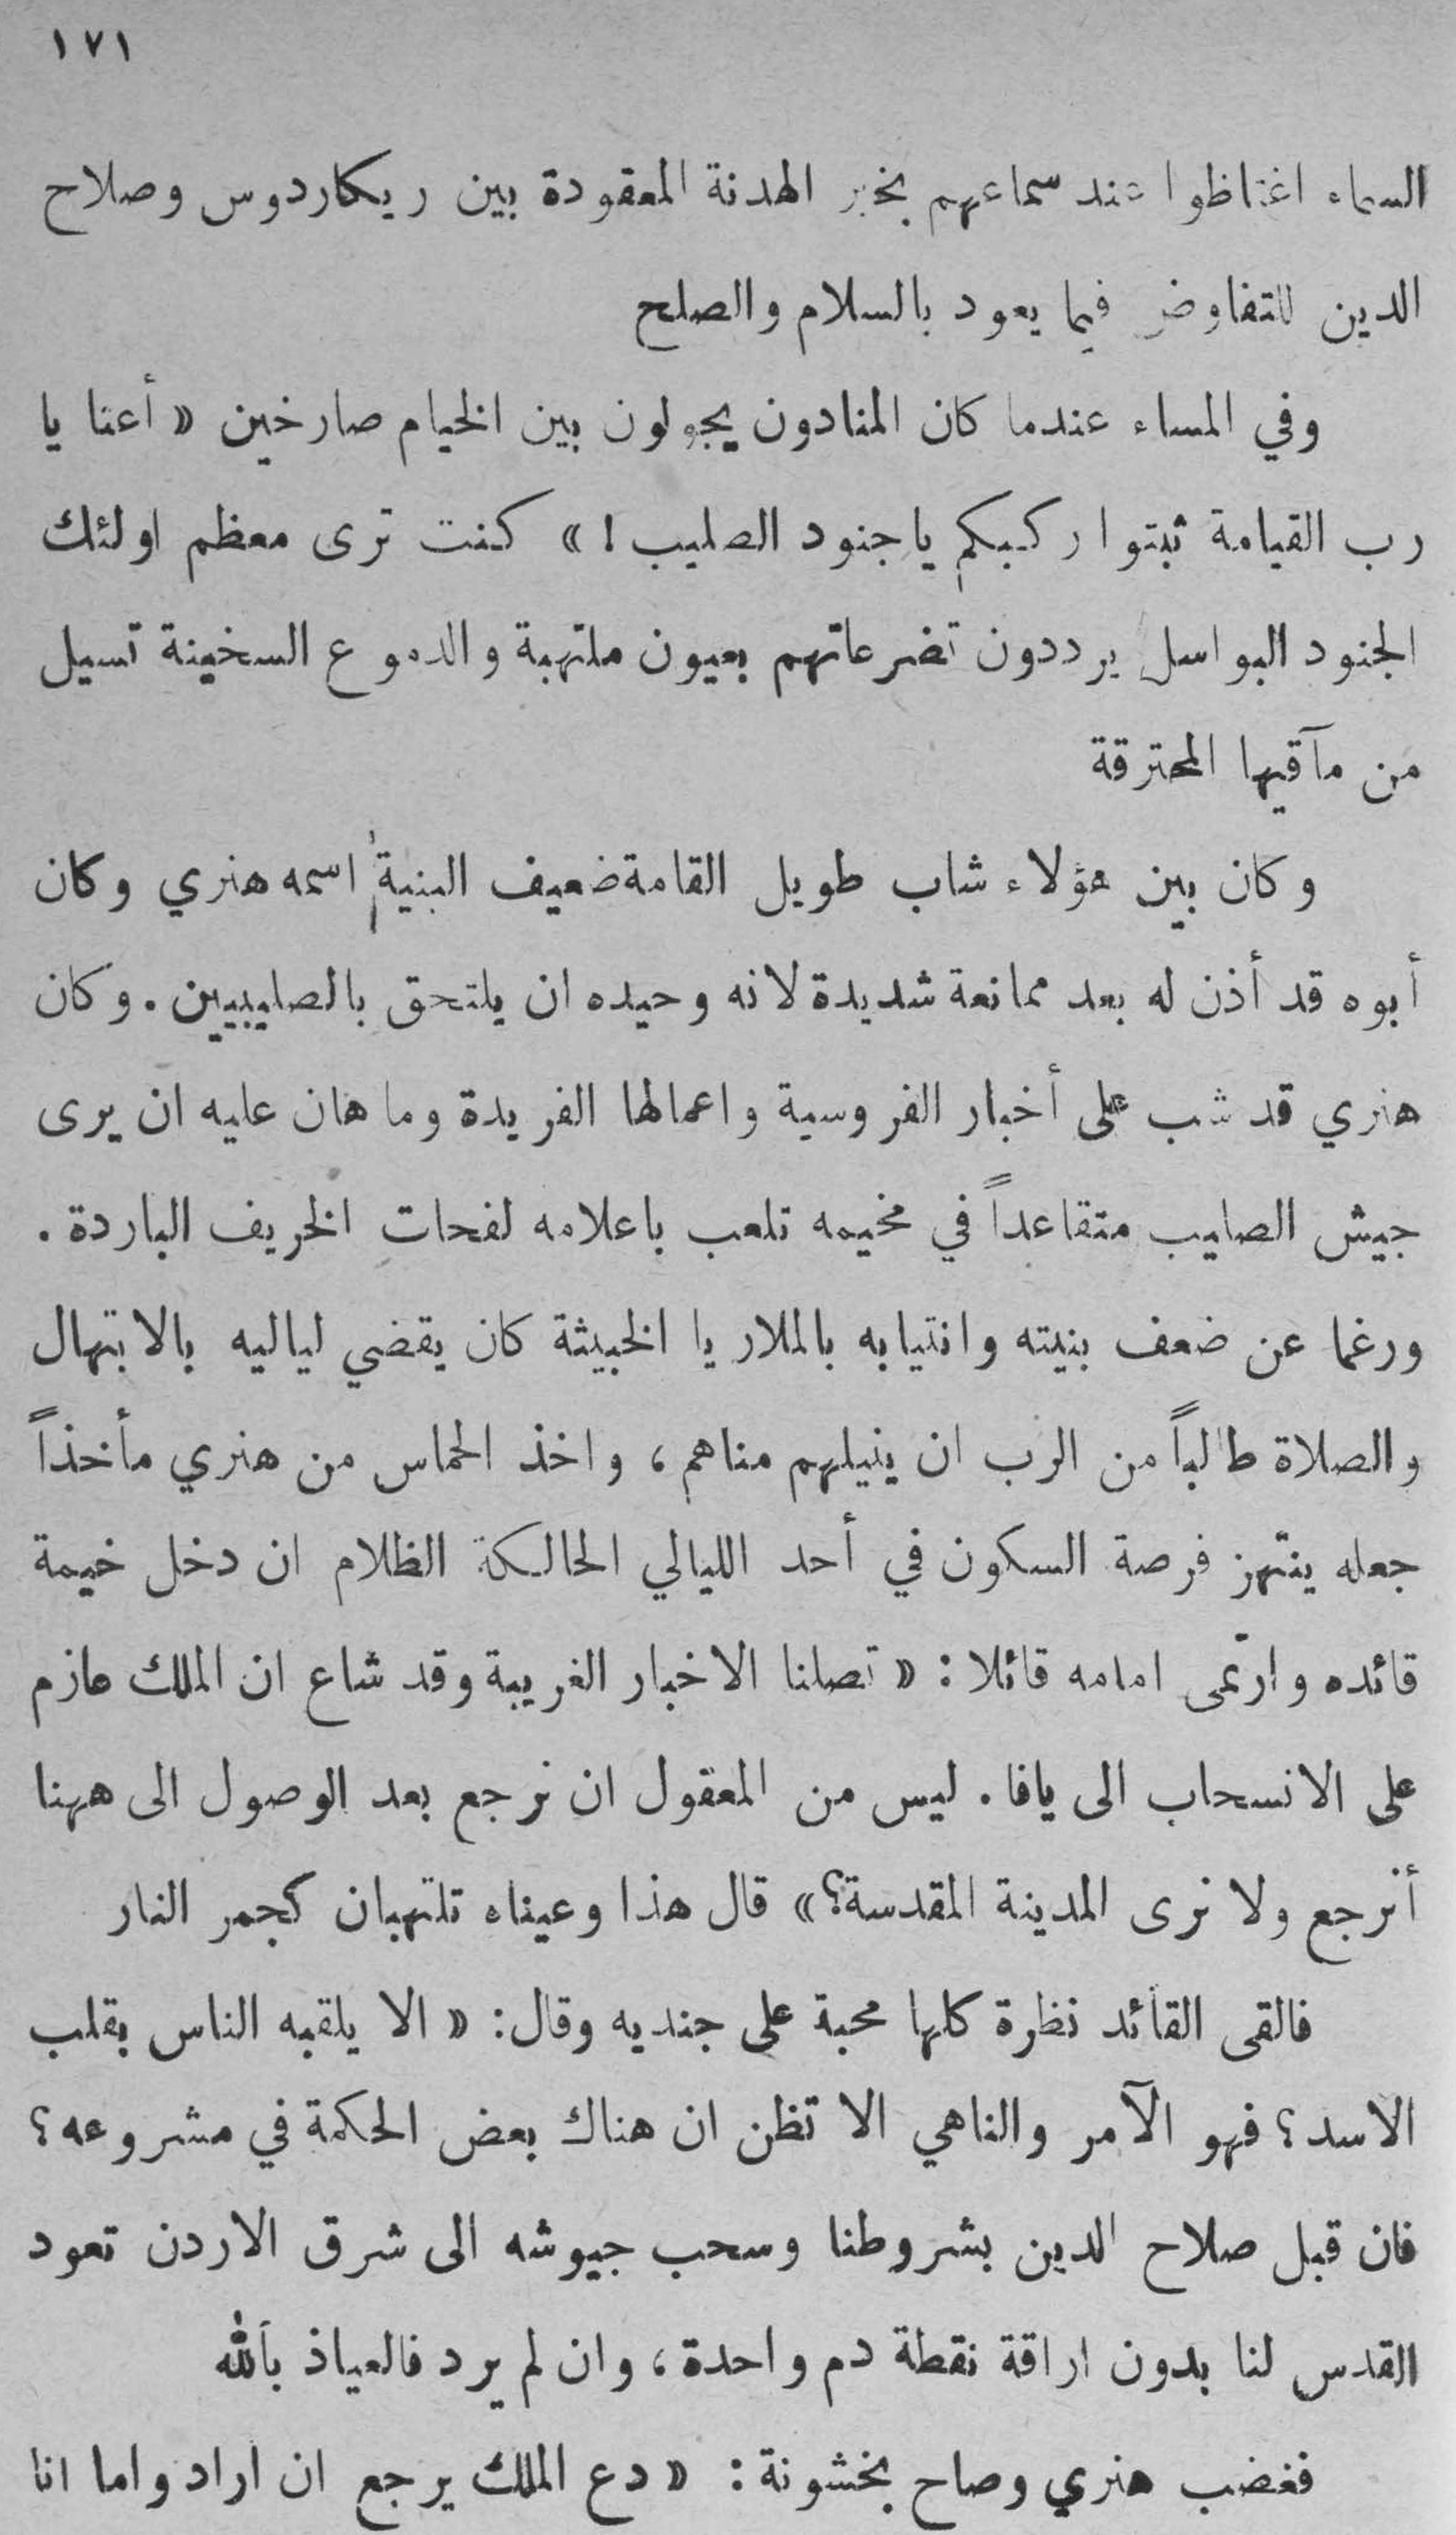 ١٧١
السماء اغتاظوا عند سماعهم بخبر الهدنة المعقودة بين ريكاردوس وصلاح
الدين للتفاوض فيما يعود بالسلام والصلح
وفي المساء عندما كان المنادون يجولون بين الخيام صارخين « أعنا يا
رب القيامة ثبتوا ركبكم ياجنود الصليب ! » كنت ترى معظم اولئك
الجنود البواسل يرددون تضرعاتهم بعيون ملتهبة والدموع السخينة تسيل
من مآقيها المحترقة
وكان بين هؤلاء شاب طويل القامة ضعيف البنية اسمه هنري وكان
أبوه قد أذن له بعد ممانعة شديدة لانه وحيده ان يلتحق بالصليبيين . وكان
هنري قد شب على أخبار الفروسية واعمالها الفريدة وما هان عليه ان يرى
جيش الصليب متقاعداً في مخيمه تلعب باعلامه لفحات الخريف الباردة .
ورغما عن ضعف بنيته وانتيابه بالملاريا الخبيثة كان يقضي لياليه بالابتهال
والصلاة طالباً من الرب ان ينيلهم مناهم ، واخذ الحماس من هنري مأخذاً
جعله ينتهز فرصة السكون في أحد الليالي الحالكة الظلام ان دخل خيمة
قائده وارتمى امامه قائلا : « تصلنا الاخبار الغريبة وقد شاع ان الملك عازم
على الانسحاب الى يافا . ليس من المعقول ان نرجع بعد الوصول الى ههنا
أنرجع ولا نرى المدينة المقدسة؟ » قال هذا وعيناه تلتهبان كجمر النار
فالقى القائد نظرة كلها محبة على جنديه وقال : « الا يلقبه الناس بقلب
الاسد ؟ فهو الآمر والناهي الا تظن ان هناك بعض الحكمة في مشروعه ؟
فان قبل صلاح الدين بشروطنا وسحب جيوشه الى شرق الاردن تعود
القدس لنا بدون اراقة نقطة دم واحدة ، وان لم يرد فالعياذ بالله
فغضب هنري وصاح بخشونة : « دع الملك يرجع ان اراد واما انا